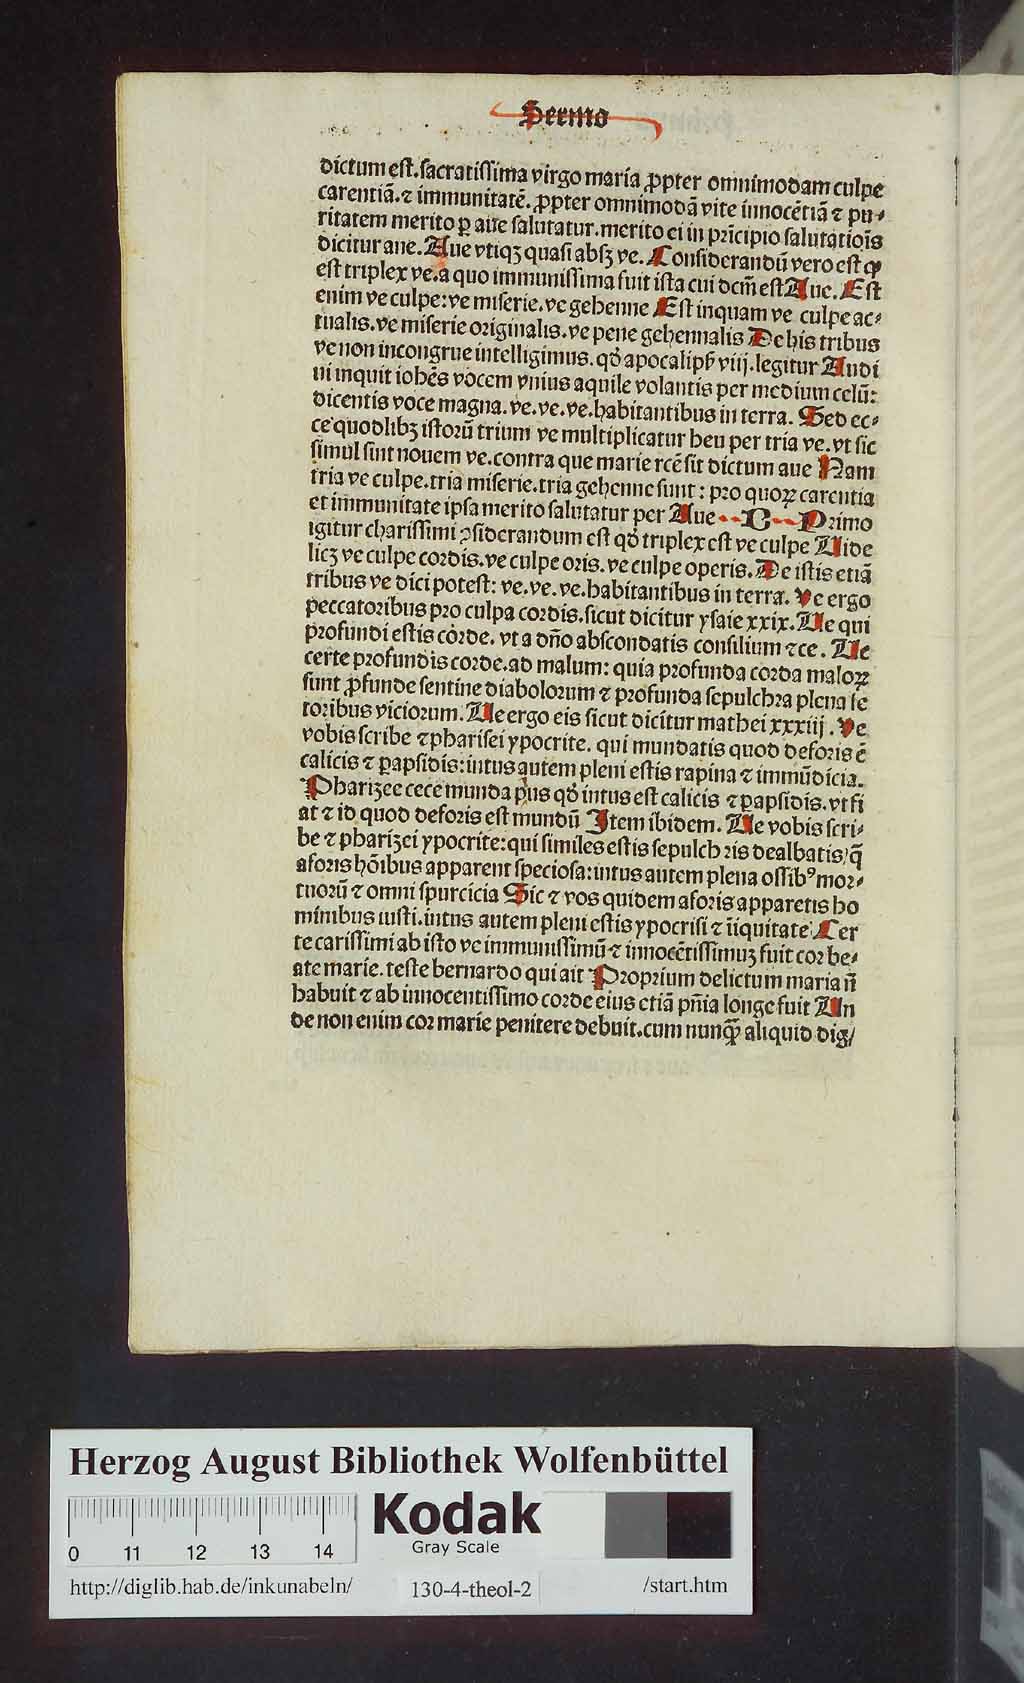 Sermo
dictum est. sacratissima virgo maria ꝓpter omnimodam culpe
carentiā. ⁊ immunitatē. ꝓpter omnimodā vite innocētiā ⁊ pu-
ritatem merito ꝑ aue salutatur. merito ei in prīcipio salutatiōis
dicitur aue. Aue vtiqꝫ quasi absqꝫ ve. Considerandū vero est ꝙ
est triplex ve. a quo immunissima fuit ista cui dcm̄ est Aue. Est
enim ve culpe: ve miserie. ve gehenne Est inquam ve culpe ac-
tualis. ve miserie originalis. ve pene gehennalis De his tribus
ve non incongrue intelligimus. qđ apocalipꝭ viij. legitur Audi
ui inquit iohēs vocem vnius aquile volantis per medium celū:
dicentis voce magna. ve. ve. ve. habitantibus in terra. Sed ec-
ce quodlibꝫ istorū trium ve multiplicatur heu per tria ve. vt sic
simul sunt nouem ve. contra que marie rcē sit dictum aue Nam
tria ve culpe. tria miserie. tria gehenne sunt: pro quoꝝ carentia
et immunitate ipsa merito salutatur per Aue C Primo
igitur charissimi ꝯsiderandum est qđ triplex est ve culpe Uide
licꝫ ve culpe cordis. ve culpe oris. ve culpe operis. De istis etiā
tribus ve dici potest: ve. ve. ve. habitantibus in terra. Ve ergo
peccatoribus pro culpa cordis. sicut dicitur ysaie xxix. Ue qui
profundi estis corde. vt a dño abscondatis consilium ⁊ce. Ue
certe profundis corde. ad malum: quia profunda corda maloꝝ
sunt ꝓfunde sentine diabolorum ⁊ profunda sepulchra plena fe
toribus viciorum. Ue ergo eis sicut dicitur mathei xxxiij. Ve
vobis scribe ⁊ pharisei ypocrite. qui mundatis quod deforis ē
calicis ⁊ ꝑapsidis: intus autem pleni estis rapina ⁊ immūdicia.
Pharizee cece munda pꝰus qđ intus est calicis ⁊ ꝑapsidis. vt fi
at ⁊ id quod deforis est mundū Item ibidem. Ue vobis scri-
be ⁊ pharizei ypocrite: qui similes estis sepulchris dealbatis/ q̄
aforis hōibus apparent speciosa: intus autem plena ossibꝰ mor-
tuorū ⁊ omni spurcicia Sic ⁊ vos quidem aforis apparetis ho
minibus iusti. intus autem pleni estis ypocrisi ⁊ īiquitate Cer
te carissimi ab isto ve immunissimū ⁊ innocētissimuꝫ fuit cor be-
ate marie. teste bernardo qui ait Proprium delictum maria nō
habuit ⁊ ab innocentissimo corde eius etiā pn̄ia longe fuit Un
de non enim cor marie penitere debuit. cum nunqꝫ aliquid dig/
Herzog August Bibliothek Wolfenbüttel
Kodak
Gray Scale
0 11 12 13 14
http://diglib.hab.de/inkunabeln/ 130-4-theol-2 /start.htm